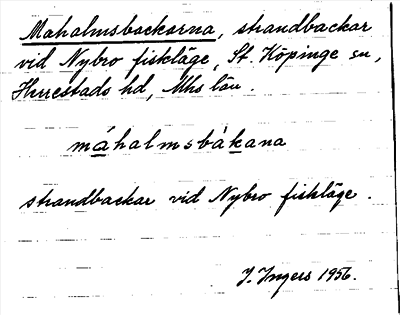 Maholmsbackarna, strandbackar
vid Nybro fiskläge, St. Köpinge sn,
Mhs län.
máholmsbàkana
strandbackar vid Nybro fiskläge.
J. Ingers 1956.